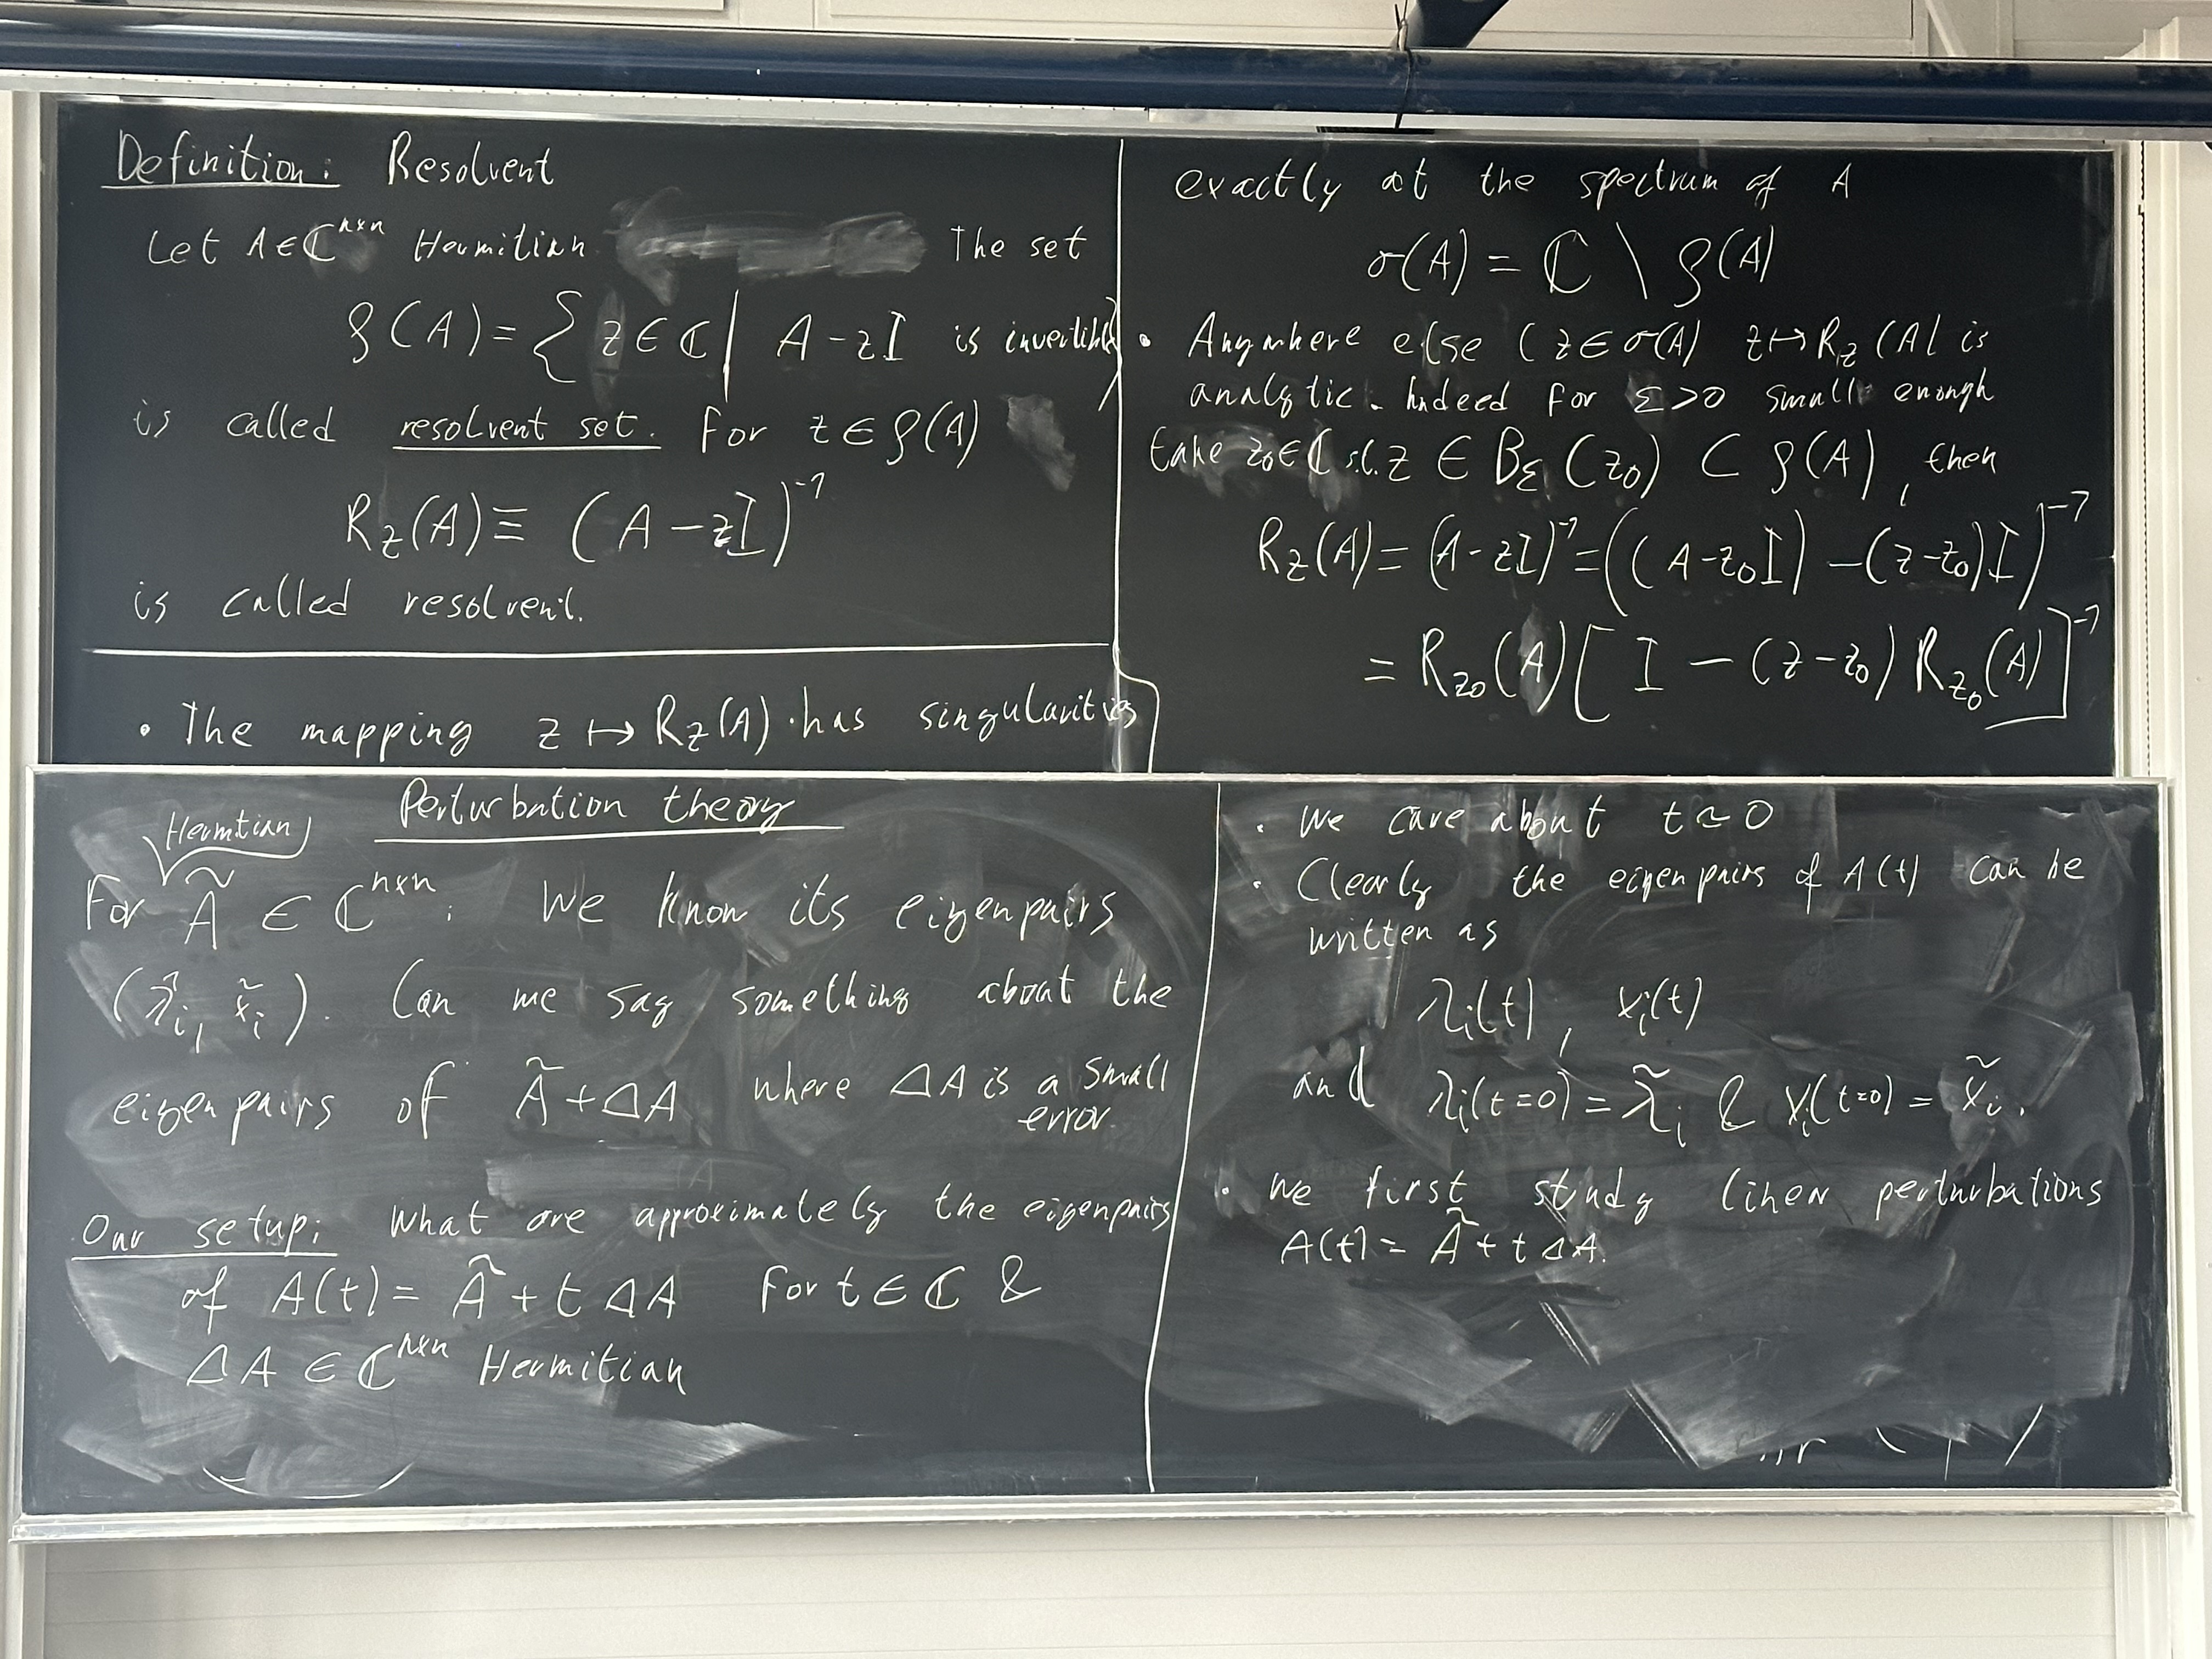 Definition: Resolvent
Let A ∈ ℂ^{n×n} Hermitian The set
ρ(A) = { z ∈ ℂ | A - zI is invertible }
is called resolvent set. For z ∈ ρ(A)
R_z(A) ≡ (A - zI)^{-1}
is called resolvent.
• The mapping z ↦ R_z(A) has singularities
exactly at the spectrum of A
σ(A) = ℂ \ ρ(A)
• Anywhere else (z ∈ σ(A) z ↦ R_z(A) is
analytic. Indeed for ε > 0 small enough
take z_0 ∈ ℂ s.t. z ∈ B_ε(z_0) ⊂ ρ(A), then
R_z(A) = (A - zI)^{-1} = ((A - z_0 I) - (z - z_0)I)^{-1}
= R_{z_0}(A) [I - (z - z_0) R_{z_0}(A)]^{-1}
Perturbation theory
Hermtian
For Ã ∈ ℂ^{n×n}: We know its eigenpairs
(λ̃_i, x̃_i). Can we say something about the
eigenpairs of Ã + ΔA where ΔA is a small
error.
Our setup: What are approximately the eigenpairs
of A(t) = Ã + t ΔA for t ∈ ℂ &
ΔA ∈ ℂ^{n×n} Hermitian
• We care about t ≈ 0
• Clearly the eigenpairs of A(t) can be
written as
λ_i(t), x_i(t)
and λ_i(t=0) = λ̃_i & x_i(t=0) = x̃_i.
• We first study linear perturbations
A(t) = Ã + t ΔA.